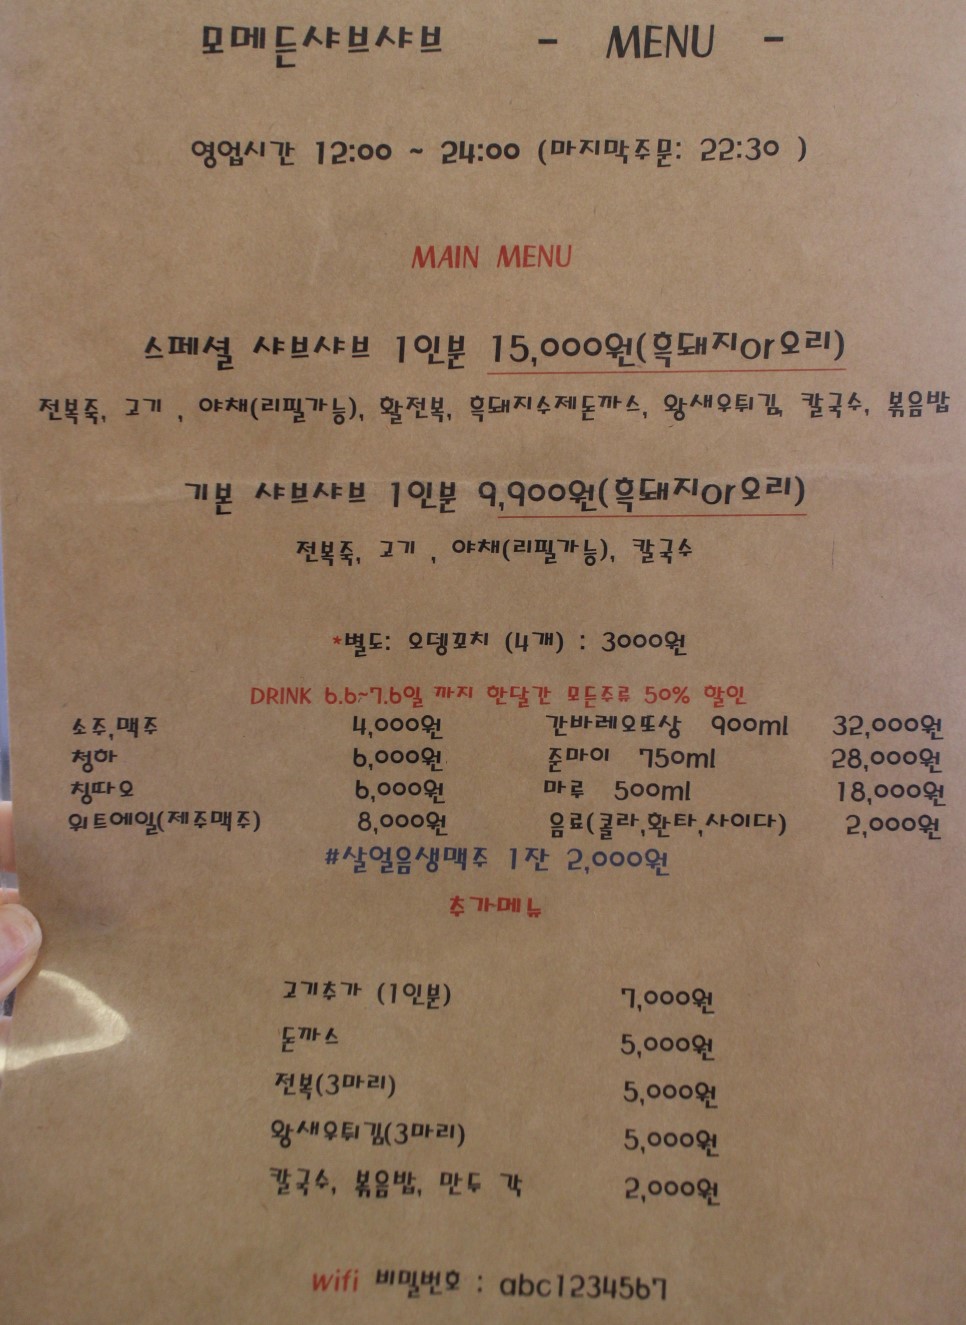 모메든샤브샤브 - MENU -
영업시간 12:00 ~ 24:00 (마지막주문: 22:30 )
MAIN MENU
스페셜 샤브샤브 1인분 15,000원(흑돼지or오리)
전복죽, 고기 , 야채(리필가능), 활전복, 흑돼지수제돈까스, 왕새우튀김, 칼국수, 볶음밥
기본 샤브샤브 1인분 9,900원(흑돼지or오리)
전복죽, 고기 , 야채(리필가능), 칼국수
*별도: 오뎅꼬치 (4개) : 3000원
DRINK 6.6~7.6일 까지 한달간 모든주류 50% 할인
소주,맥주 4,000원 간바레오또상 900ml 32,000원
청하 6,000원 준마이 750ml 28,000원
칭따오 6,000원 마루 500ml 18,000원
위트에일(제주맥주) 8,000원 음료(콜라,환타,사이다) 2,000원
#살얼음생맥주 1잔 2,000원
추가메뉴
고기추가 (1인분) 7,000원
돈까스 5,000원
전복(3마리) 5,000원
왕새우튀김(3마리) 5,000원
칼국수, 볶음밥, 만두 각 2,000원
wifi 비밀번호 : abc1234567